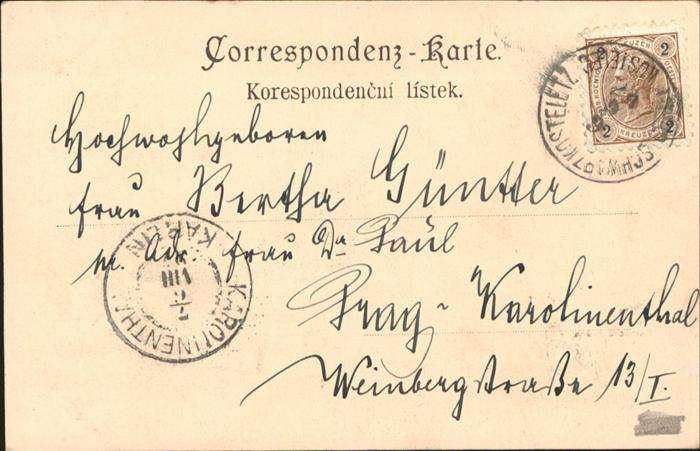 Correspondenz-Karte.
Korespondenční lístek.
2 2
KREUZER
2 2
SCHWARZKOSTELETZ
Hochwohlgeboren
Frau Bertha Güntter
p. Adr. Frau Da Paul
Prag-Karolinenthal
Weinbergstraße 13/I.
KAROLINENTHAL
KARLIN
VIII